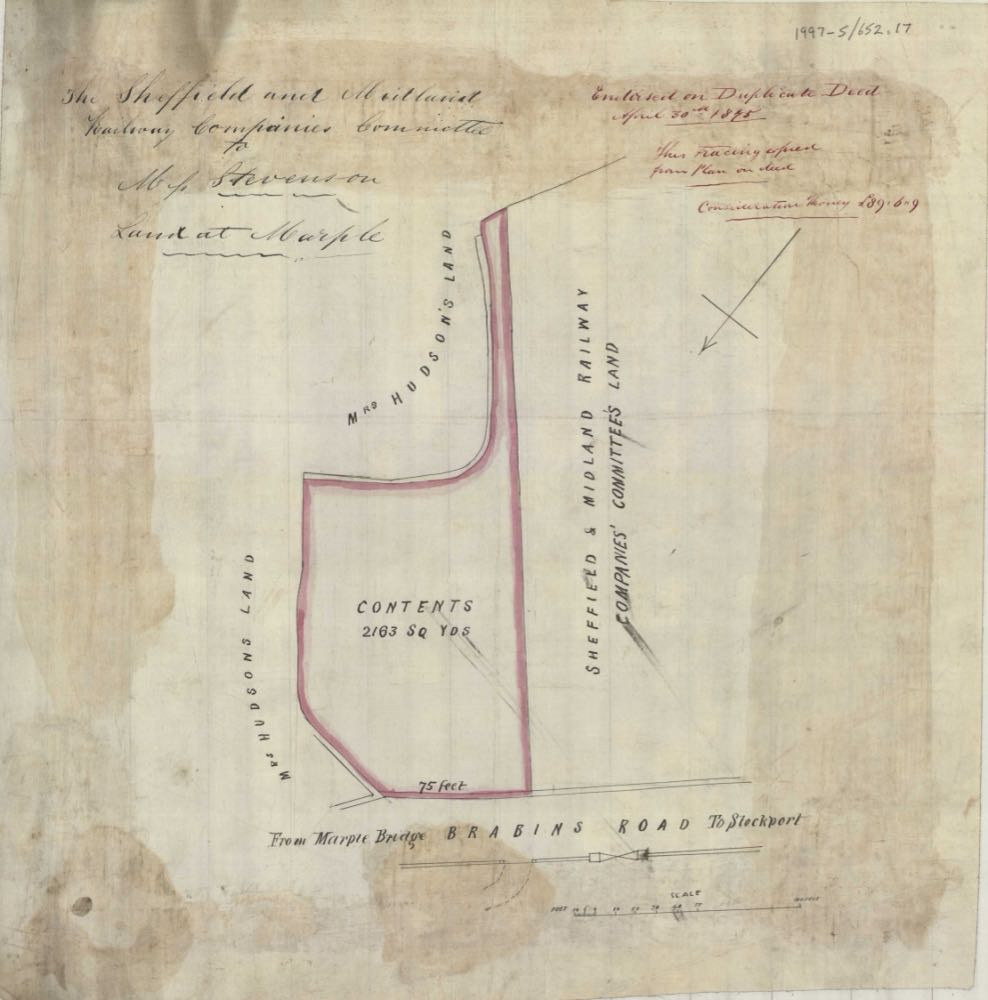 1997-5/652.17
The Sheffield and Midland
Railway Companies Committee
to
Stevenson
Land at Marple
Endorsed on Duplicate Deed
April 30th 1875
This tracing copied
from Plan on deed
Consideration Money £89.6.9
MRS HUDSON'S LAND
SHEFFIELD & MIDLAND RAILWAY
COMPANIES' COMMITTEE'S LAND
CONTENTS
2163 SQ YDS
MRS HUDSONS LAND
75 feet
From Marple Bridge BRABINS ROAD To Stockport
SCALE
FEET